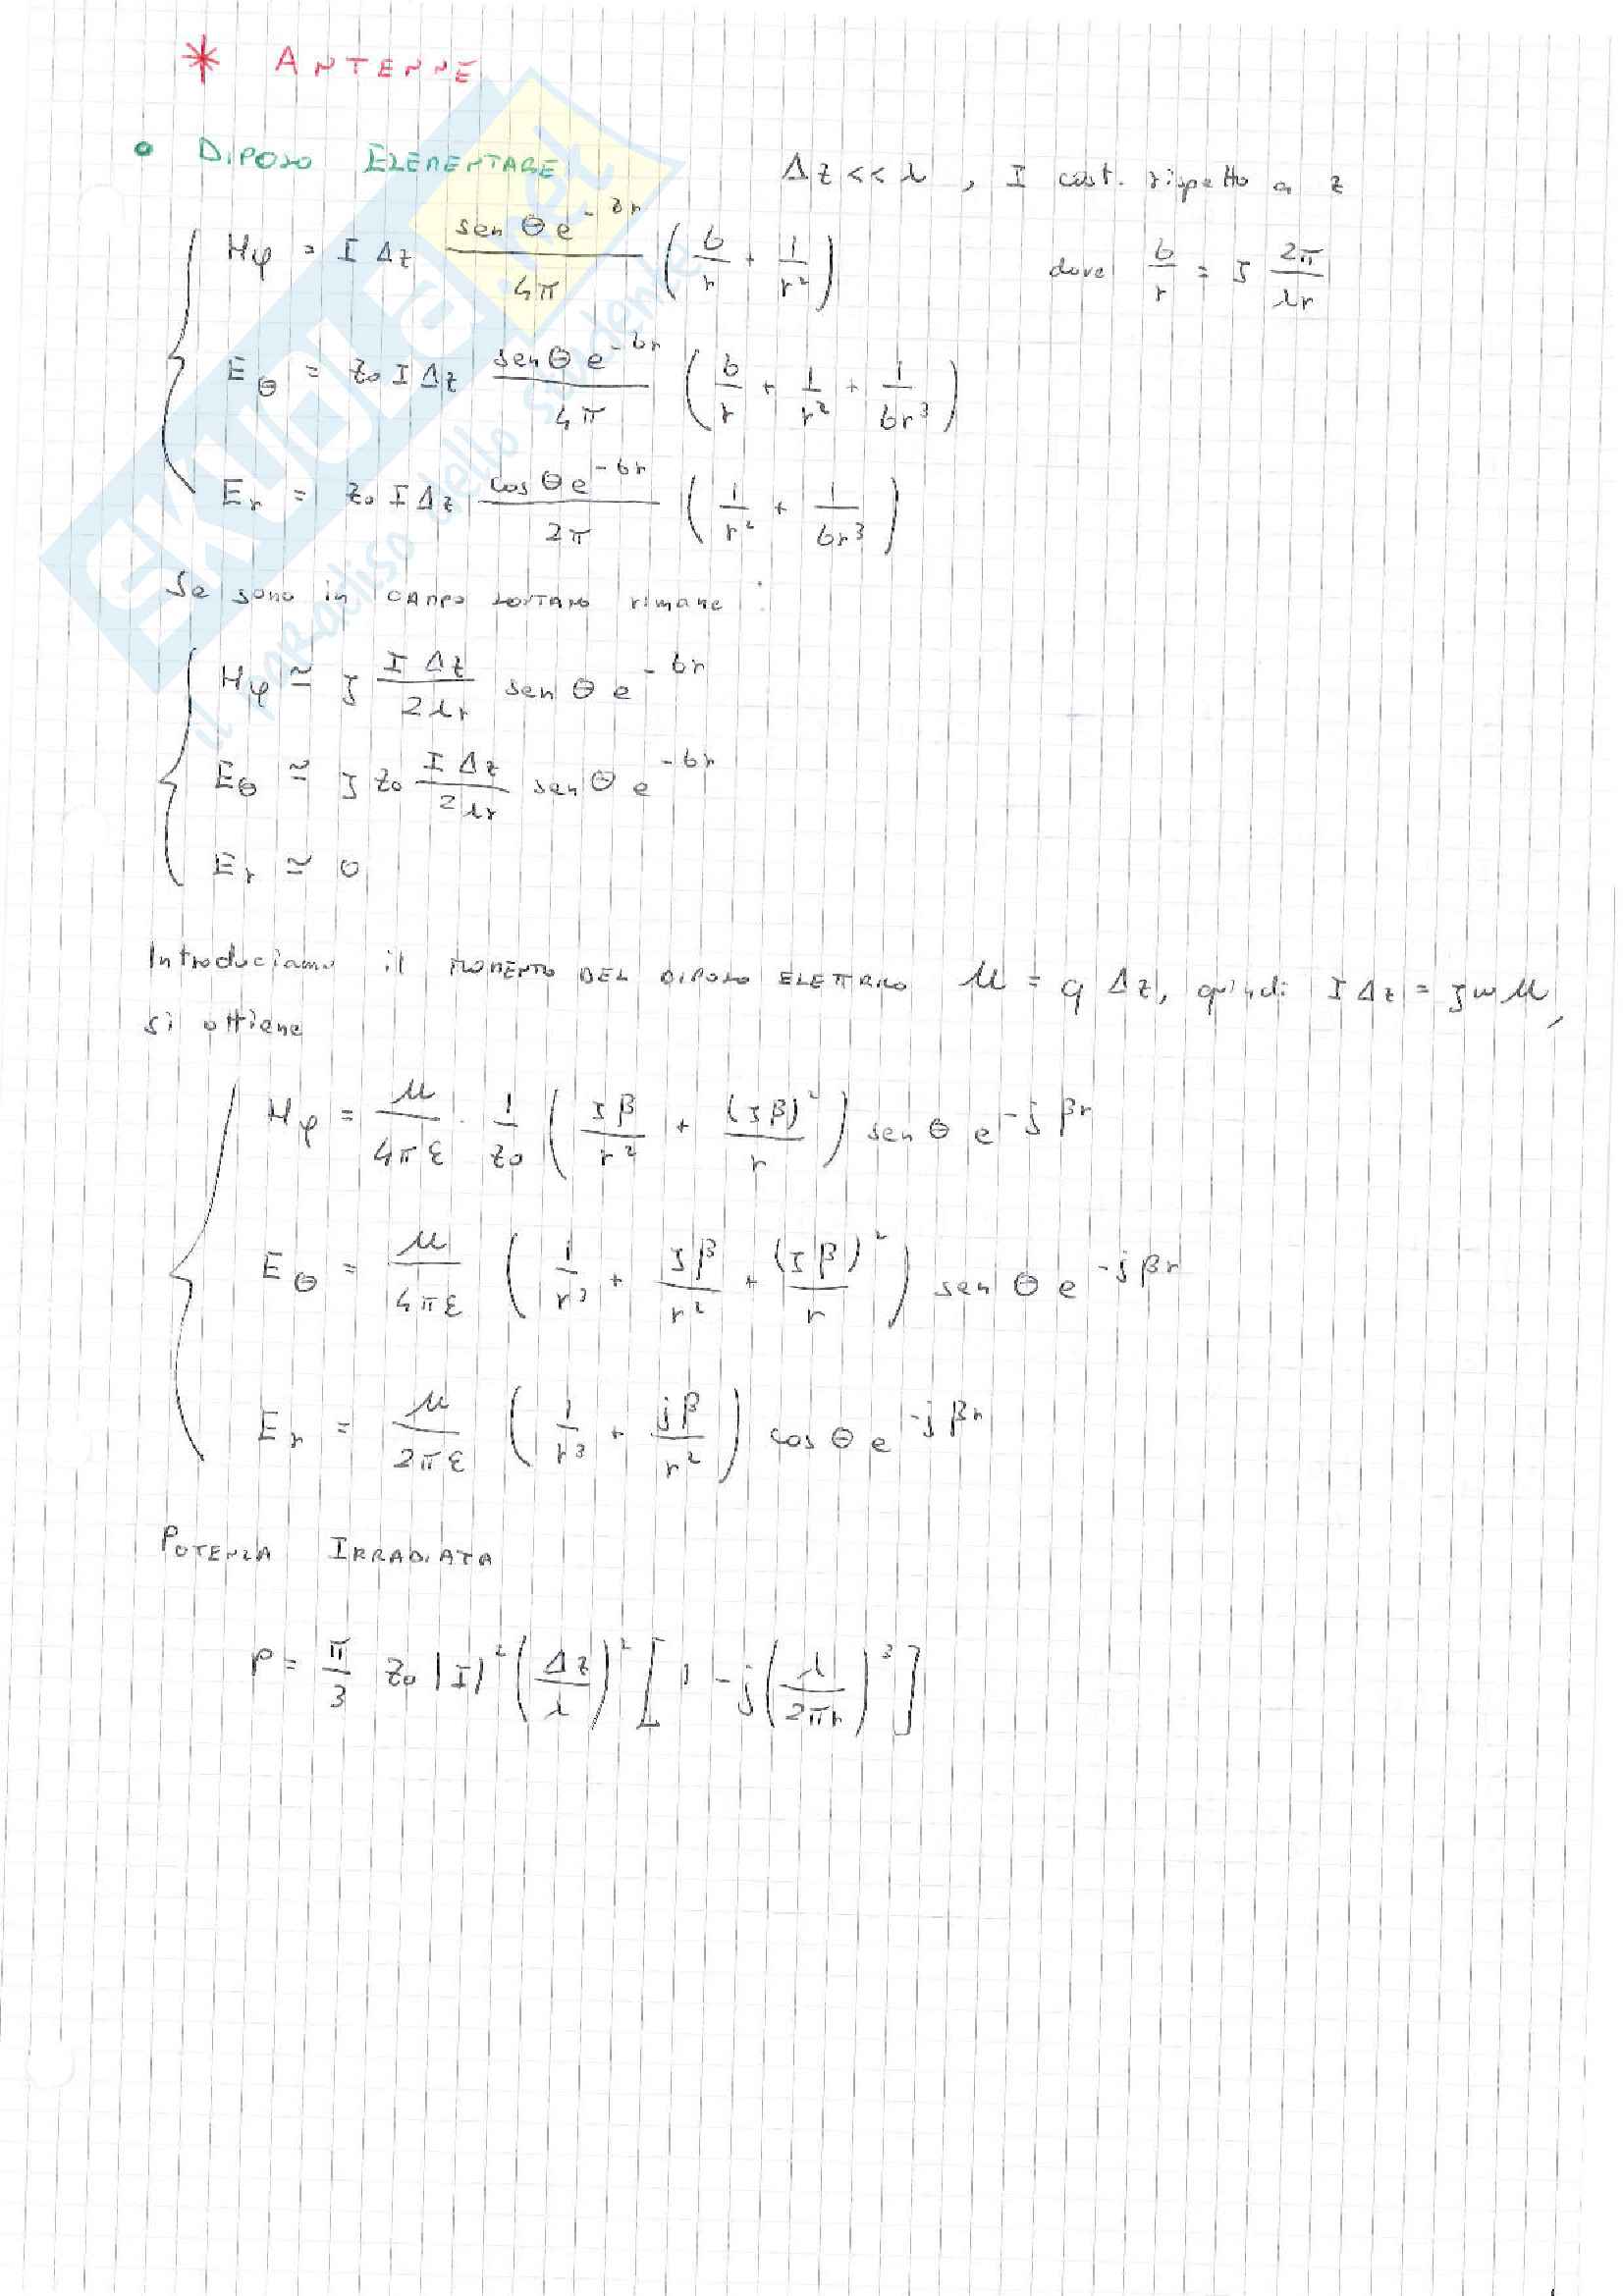 * ANTENNE
• DIPOLO ELEMENTARE Δz << λ , I cost. rispetto a z
Hφ = I Δz (sen θ e^(-σr))/(4π) (σ/r + 1/r²) dove σ/r = j 2π/(λr)
Eθ = z₀ I Δz (sen θ e^(-σr))/(4π) (σ/r + 1/r² + 1/(σr³))
Er = z₀ I Δz (cos θ e^(-σr))/(2π) (1/r² + 1/(σr³))
Se sono in CAMPO LONTANO rimane :
Hφ ≃ j (I Δz)/(2λr) sen θ e^(-σr)
Eθ ≃ j z₀ (I Δz)/(2λr) sen θ e^(-σr)
Er ≃ 0
Introduciamo il MOMENTO DEL DIPOLO ELETTRICO M = q Δz, quindi I Δz = jωM,
si ottiene
Hφ = M/(4πε) · 1/z₀ (jβ/r² + (jβ)²/r) sen θ e^(-jβr)
Eθ = M/(4πε) (1/r³ + jβ/r² + (jβ)²/r) sen θ e^(-jβr)
Er = M/(2πε) (1/r³ + jβ/r²) cos θ e^(-jβr)
POTENZA IRRADIATA
P = π/3 z₀ |I|² (Δz/λ)² [1 - j(λ/(2πr))³]
SKUOLA.net
il paradiso dello studente